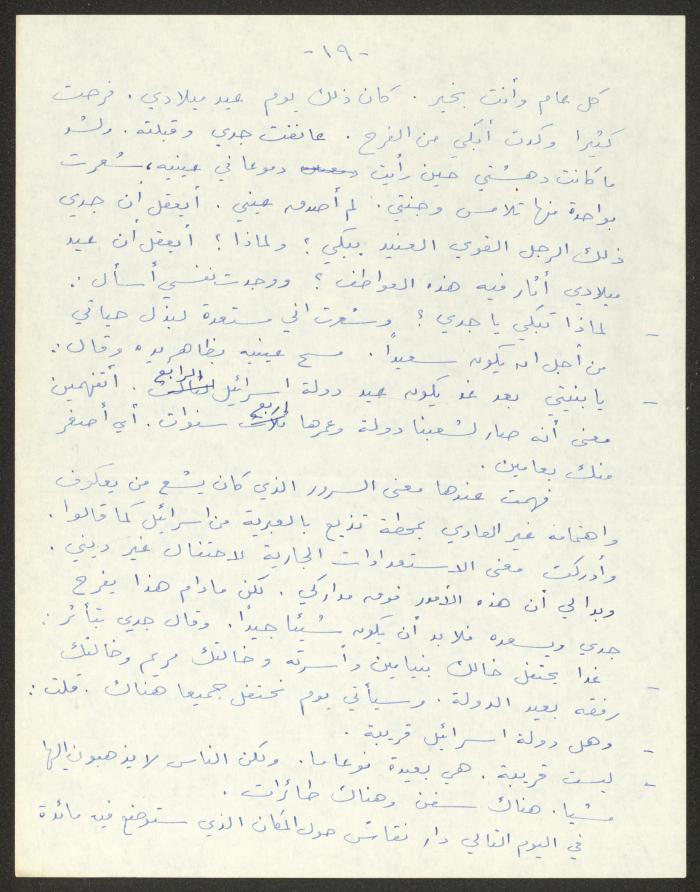 -١٩-
كل عام وأنت بخير . كان ذلك يوم عيد ميلادي . فرحت
كثيرا وكدت أبكي من الفرح . عانقت جدي وقبلته . ولشد
ما كانت دهشتي حين رأيت دموعا في عينيه، شعرت
بواحدة منها تلامس وجنتي . لم أصدق عيني . أيعقل أن جدي
ذلك الرجل القوي العنيد يبكي ؟ ولماذا ؟ أيعقل أن عيد
ميلادي أثار فيه هذه العواطف ؟ ووجدت نفسي أسأل :
- لماذا تبكي يا جدي ؟ وشعرت اني مستعدة لبذل حياتي
من أجل ان يكون سعيداً . مسح عينيه بظاهر يده وقال :
- يا بنيتي بعد غد يكون عيد دولة اسرائيل الرابع . أتفهمين
معنى أنه صار لشعبنا دولة وعمرها اربع سنوات . أي أصغر
منك بعامين .
فهمت عندها معنى السرور الذي كان يشع من يعكوف
واهتمامه غير العادي بمحطة تذيع بالعبرية من اسرائيل كما قالوا .
وأدركت معنى الاستعدادات الجارية لاحتفال غير ديني .
وبدا لي أن هذه الأمور فوق مداركي . لكن مادام هذا يفرح
جدي ويسعده فلا بد أن يكون شيئا جيدا . وقال جدي بتأثر :
- غدا يحتفل خالك بنيامين وأسرته وخالتك مريم وخالتك
رفقه بعيد الدولة . وسيأتي يوم نحتفل جميعا هناك . قلت :
- وهل دولة اسرائيل قريبة .
- ليست قريبة . هي بعيدة نوعا ما . ولكن الناس لا يذهبون إليها
مشيا . هناك سفن وهناك طائرات .
في اليوم التالي دار نقاش حول المكان الذي ستوضع فيه مائدة